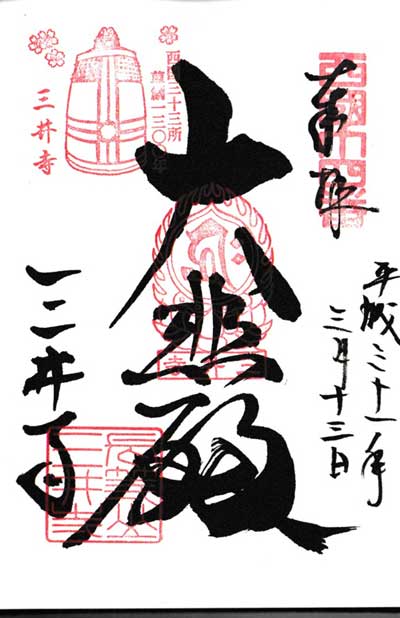 奉拝
西国十四番
平成三十一年
三月十三日
大悲殿
三井寺
西国三十三所
草創一三〇〇年
三井寺
三井寺